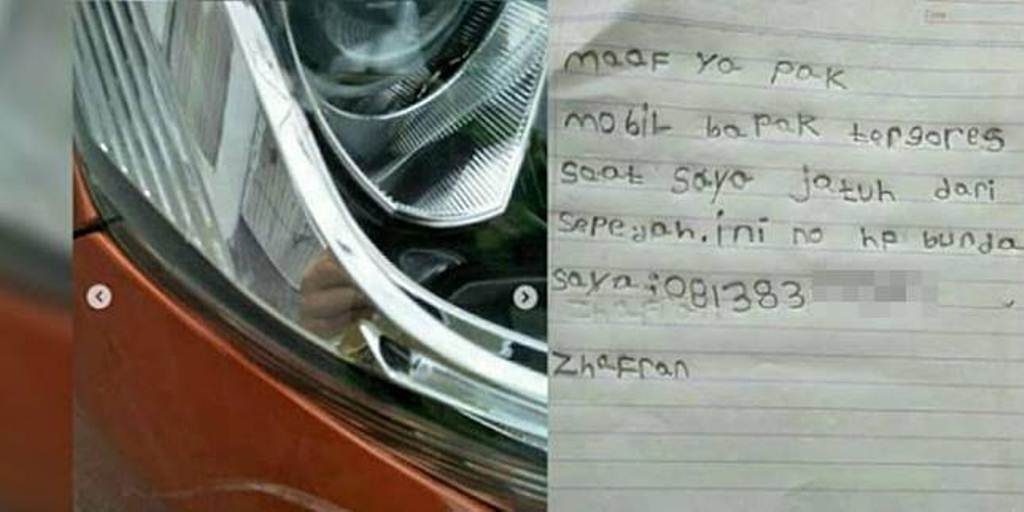 maaf ya pak
mobil bapak tergores
saat saya jatuh dari
sepedah. ini no hp bunda
saya : 081383
Zhafran